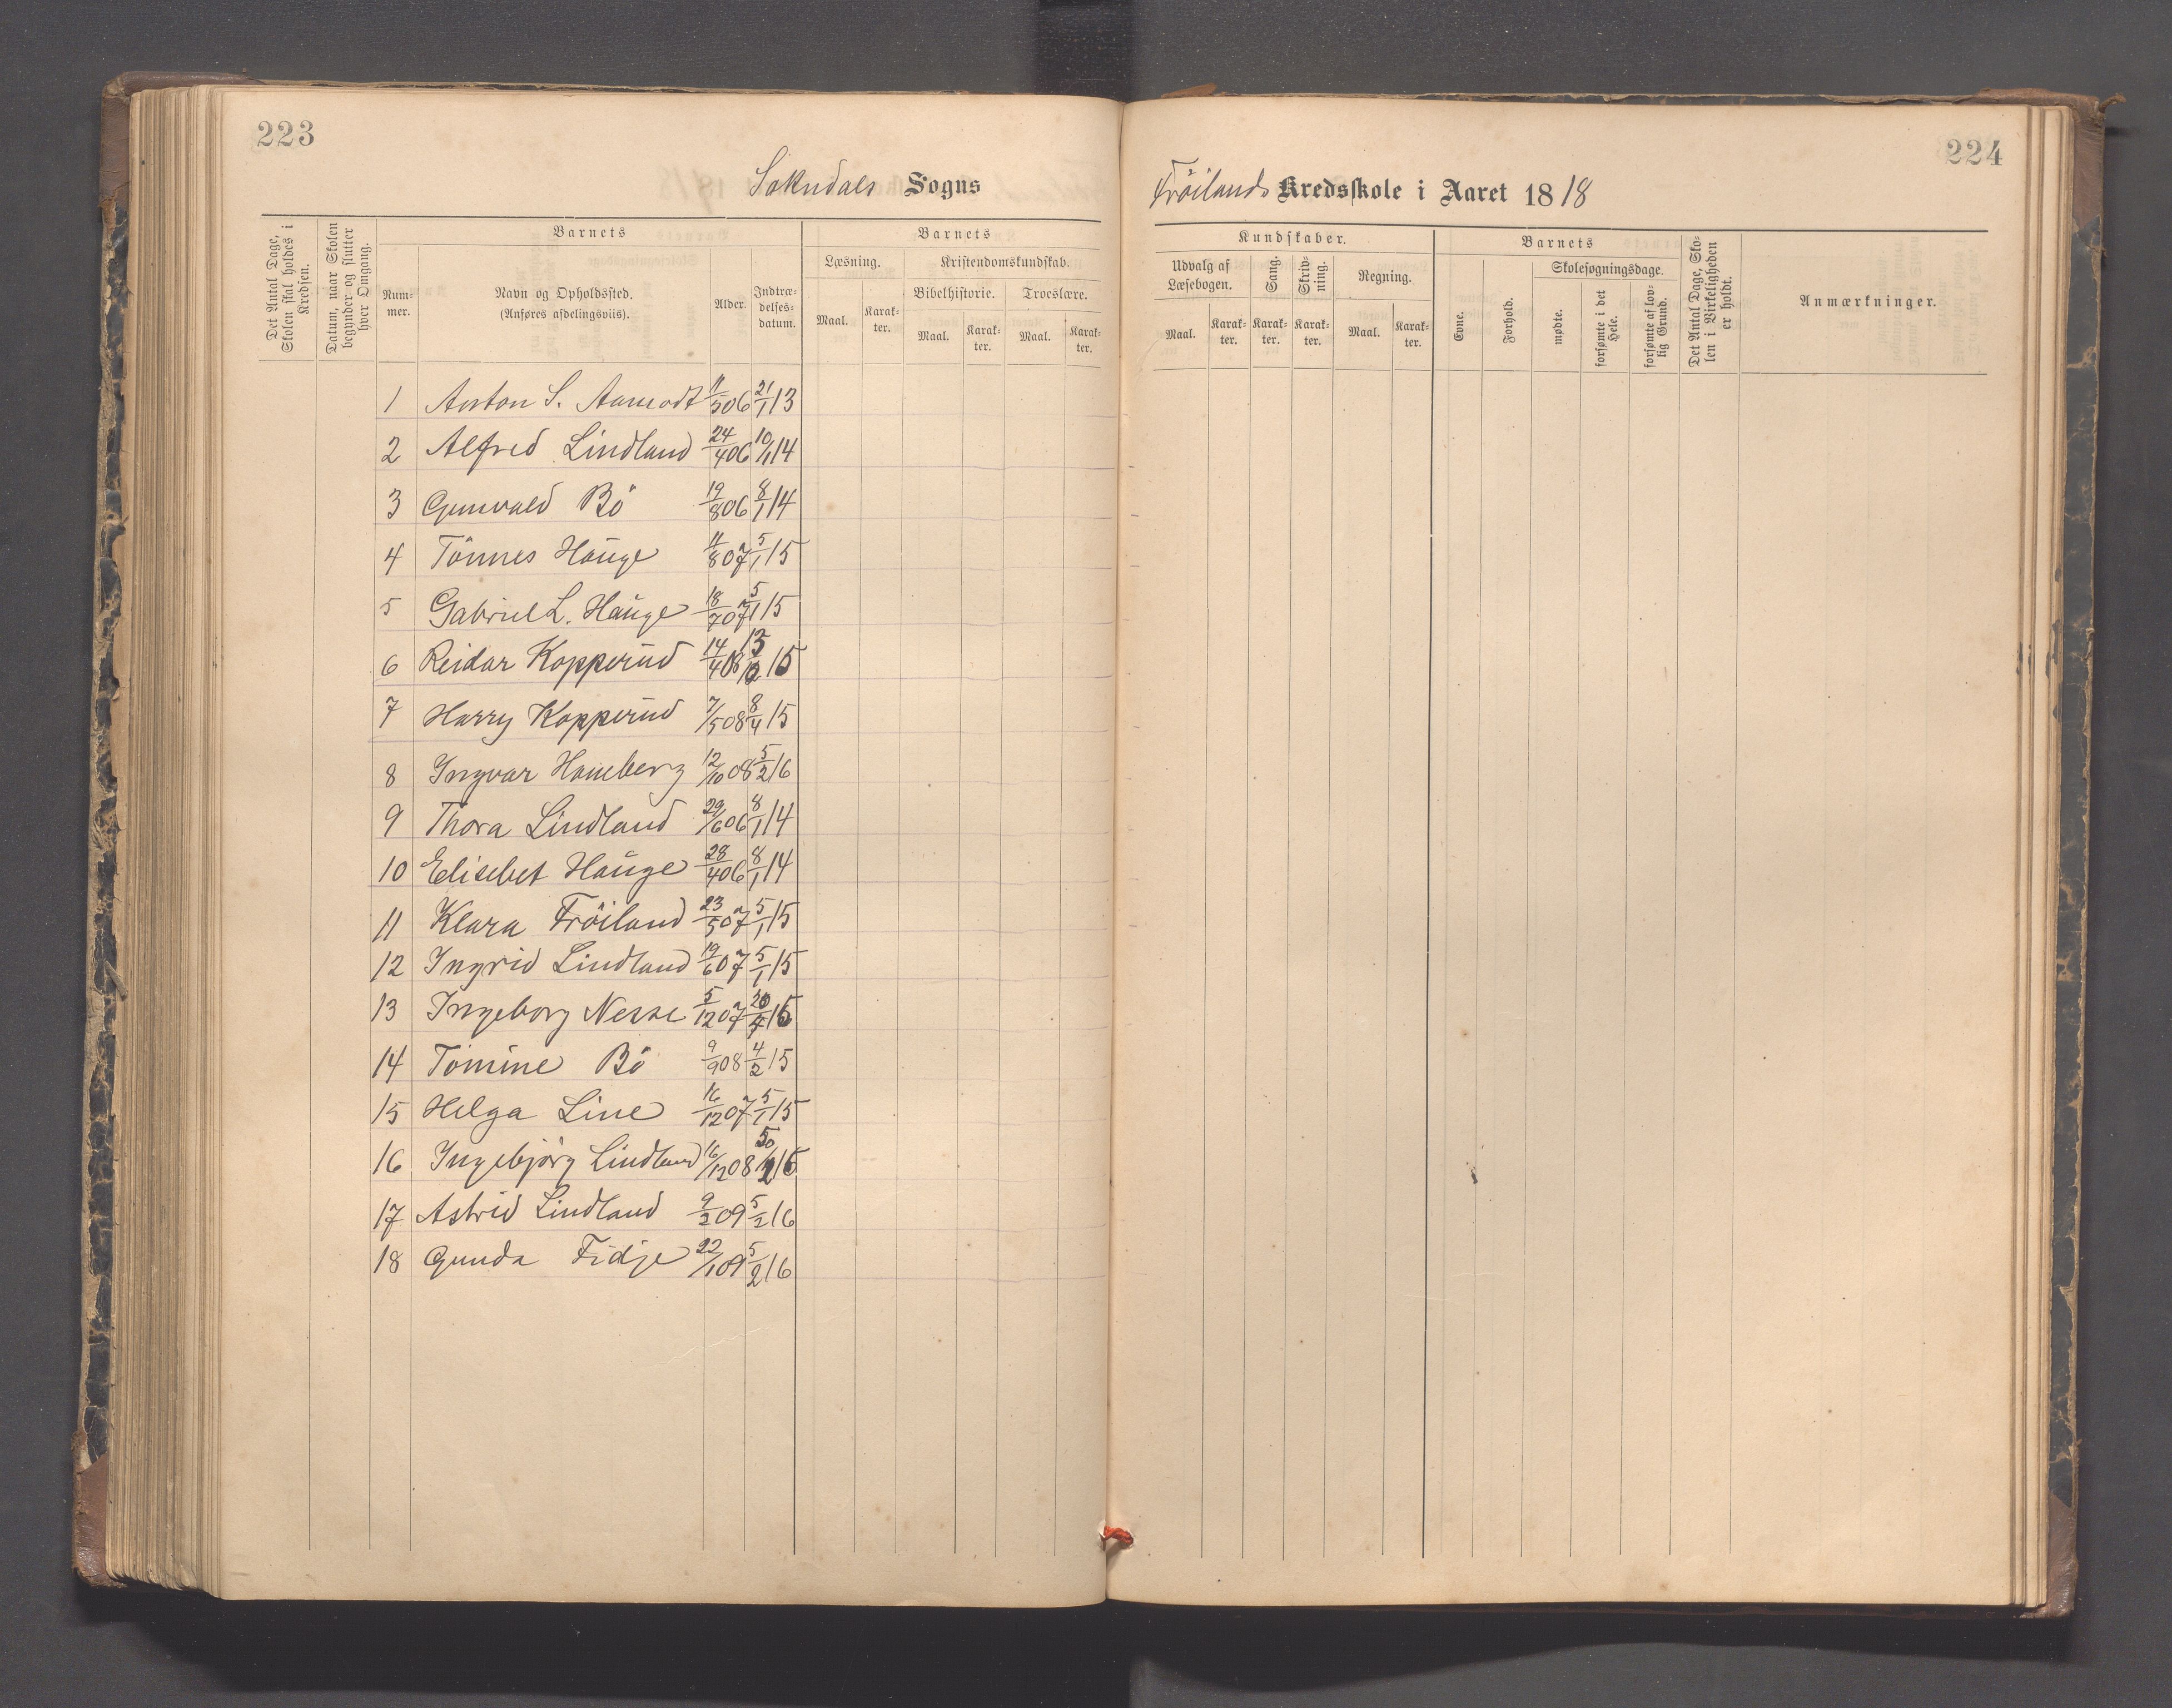 223
Sokndals Sogns
Det Antal Dage, Skolen skal holdes i Kredsen.
Datum, naar Skolen begynder og slutter hver Omgang.
Barnets
Num-mer.
Navn og Opholdssted.
(Anføres afdelingsviis).
Alder.
Indtræ-delses-datum.
Barnets
Læsning.
Maal.
Karak-ter.
Kristendomskundskab.
Bibelhistorie.
Troeslære.
Maal.
Karak-ter.
Maal.
Karak-ter.
1 Anton S. Aamodt 11/5 06 21/1 13
2 Alfred Lindland 24/4 06 10/1 14
3 Gunvald Bö 19/8 06 8/1 14
4 Tönnes Hauge 11/8 07 5/1 15
5 Gabriel L. Hauge 18/7 07 5/1 15
6 Reidar Kopperud 14/4 08
7 Harry Kopperud 7/5 08 8/4 15
8 Ingvar Homberg 12/10 08 5/2 16
9 Thora Lindland 29/6 06 8/1 14
10 Elisebet Hauge 28/4 06 8/1 14
11 Klara Fröiland 23/5 07 5/1 15
12 Ingrid Lindland 19/6 07 5/1 15
13 Ingeborg Nesse 5/12 07
14 Tomine Bö 9/9 08 4/2 15
15 Helga Line 16/12 07 5/1 15
16 Ingebjörg Lindland 16/12 08
17 Astrid Lindland 9/2 09 5/2 16
18 Gunda Fidje 22/1 09 5/2 16
224
Fröilands Kredsskole i Aaret 1818
Kundskaber.
Udvalg af Læsebogen.
Maal.
Karak-ter.
Sang.
Karak-ter.
Skriv-ning.
Karak-ter.
Regning.
Maal.
Karak-ter.
Barnets
Evne.
Forhold.
Skolesøgningsdage.
mødte.
forsømte i det Hele.
forsømte af lov-lig Grund.
Det Antal Dage, Sko-len i Virkeligheden er holdt.
Anmærkninger.